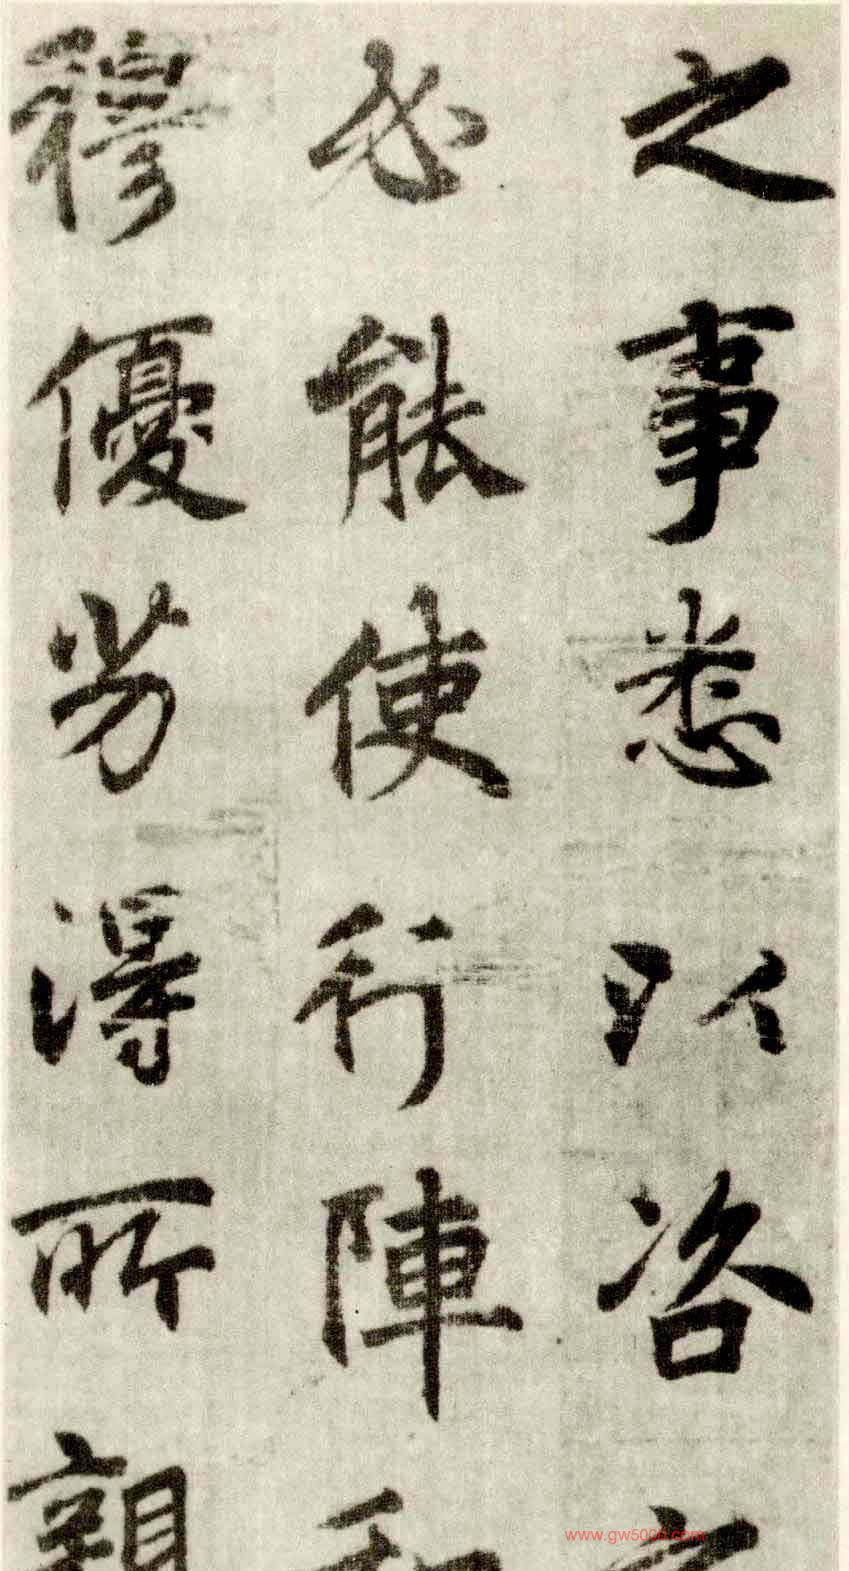 之事悉以咨之
必能使行陣和
穆優劣得所親
www.gw5000.com